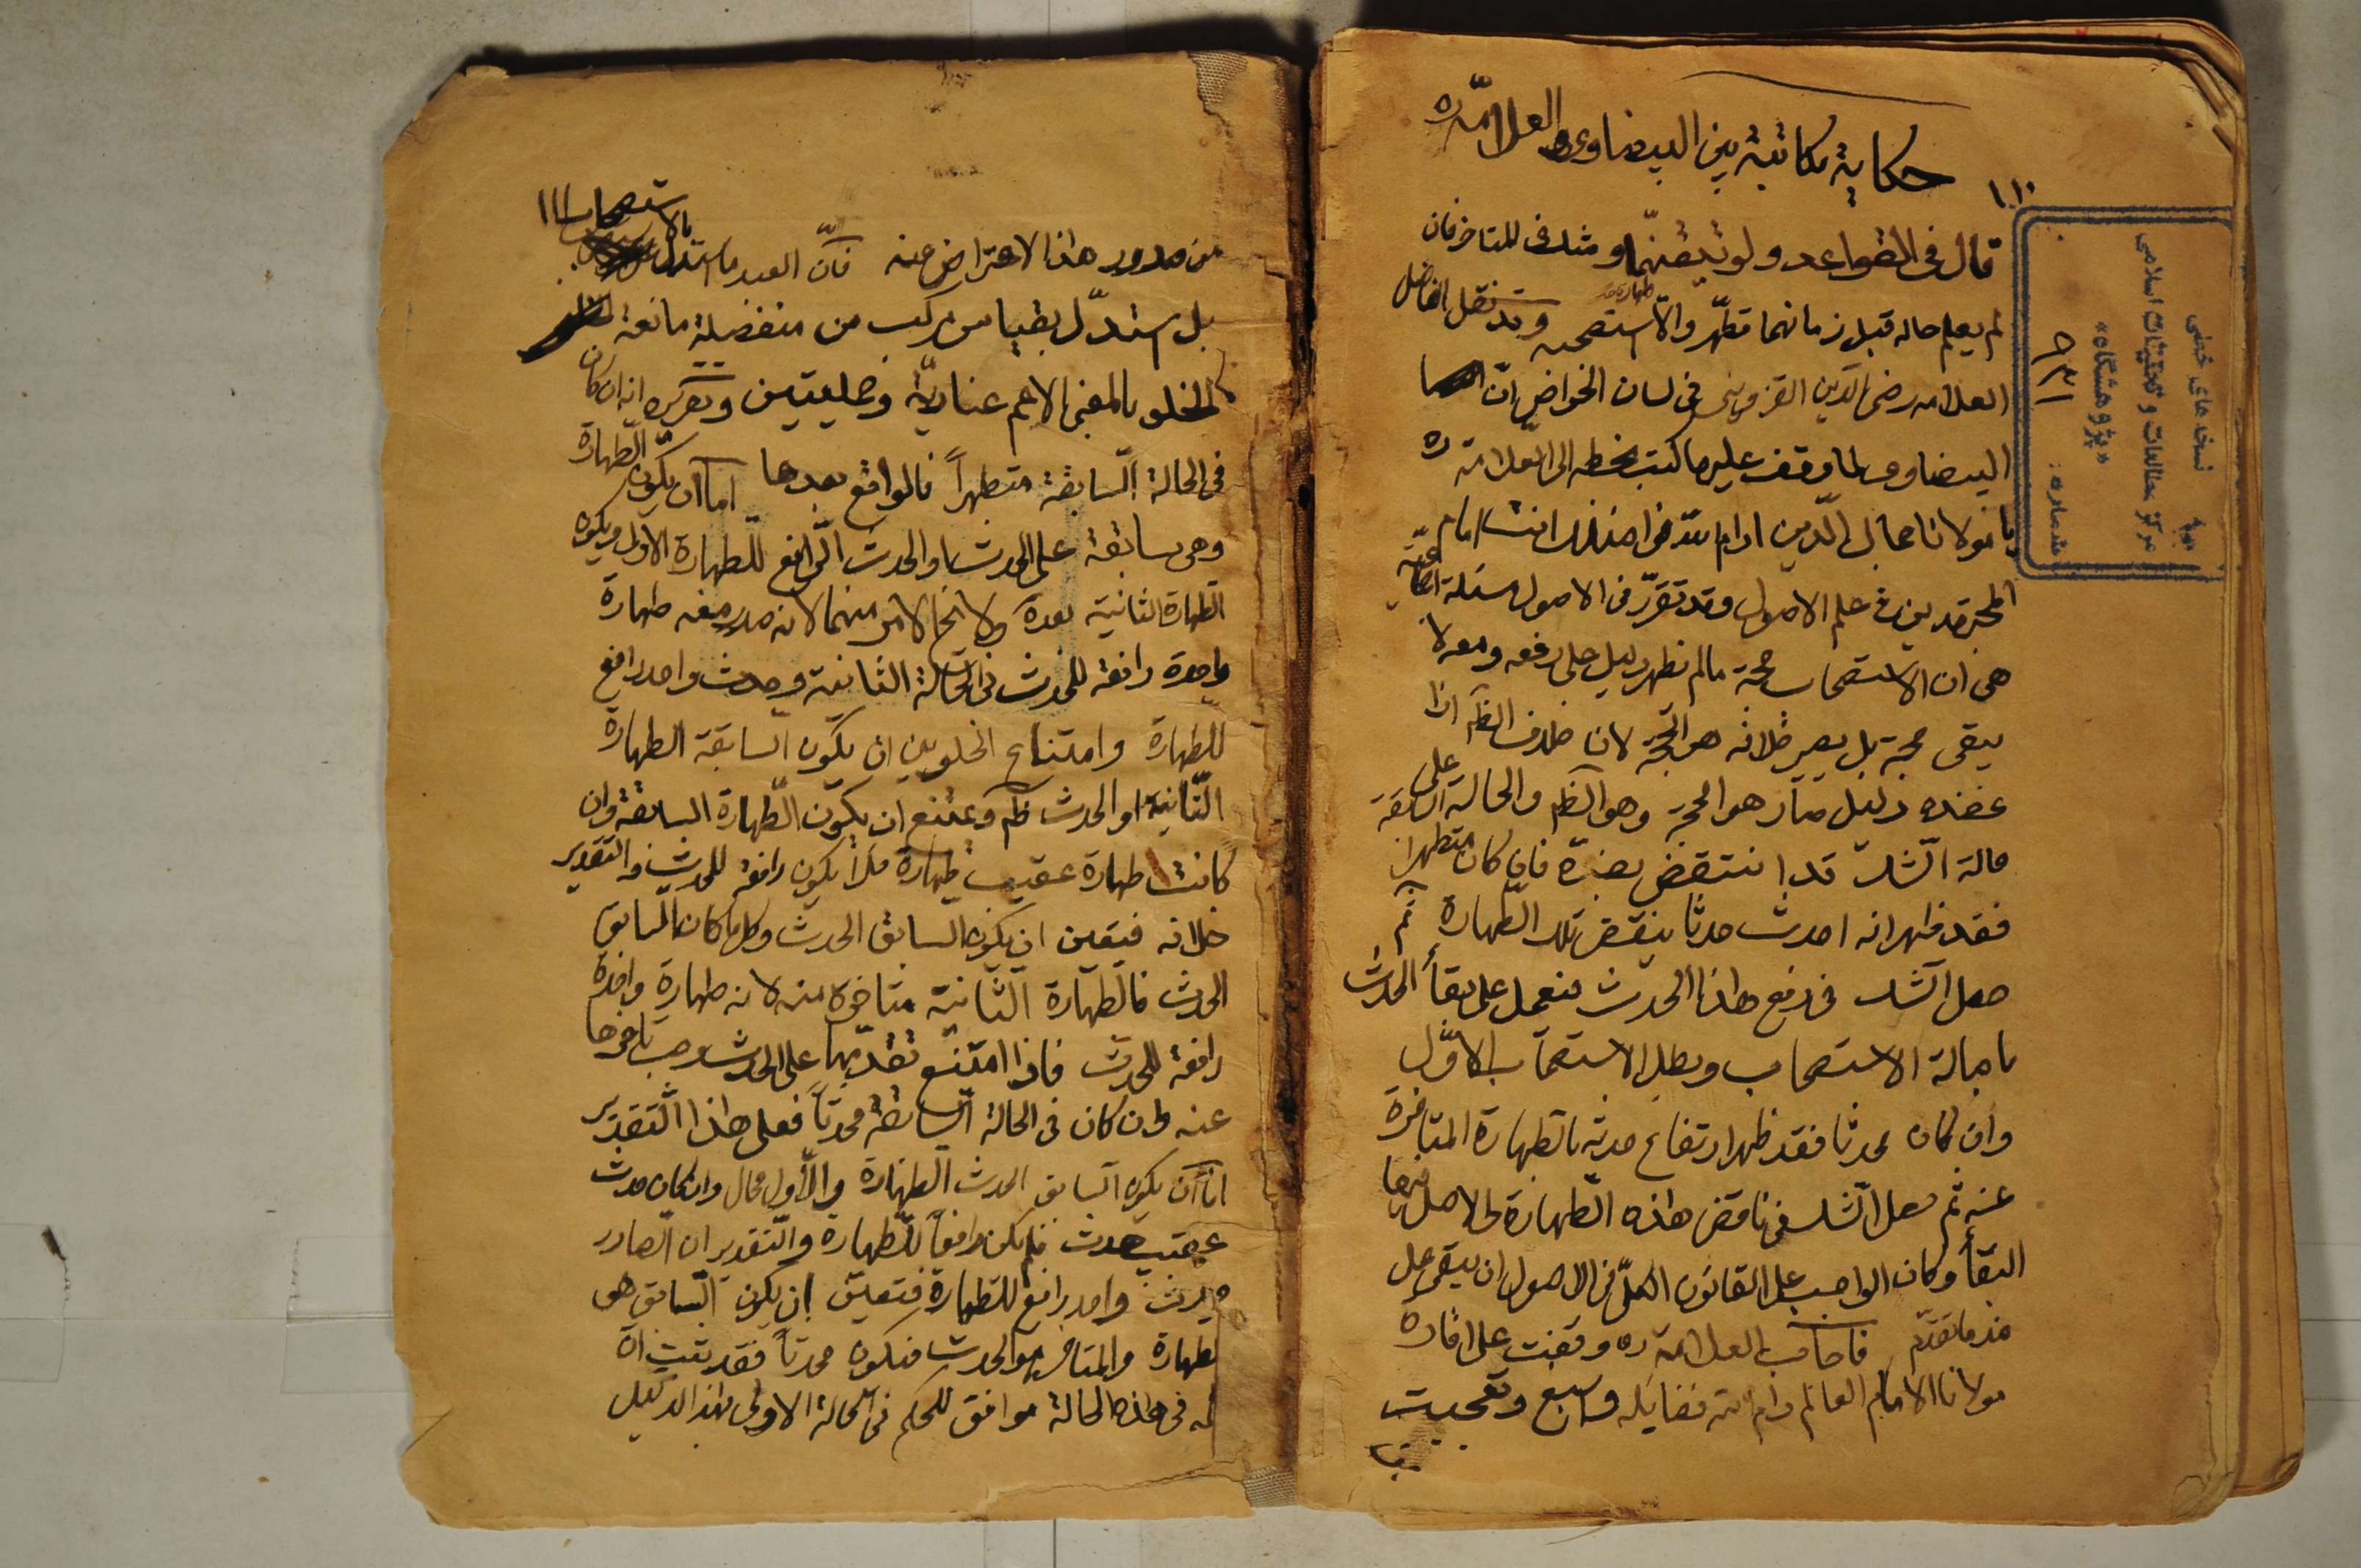 حكاية مكاتبة بين البيضاوى والعلامة ره
١١٠
قال فى القواعد ولو تيقنهما وشك فى المتاخر فان
لم يعلم حاله قبل زمانهما تطهر والا استصحبه وقد نقل الفاضل
العلامه رضى الدين القزوينى فى لسان الخواص ان
البيضاوى لما وقف عليه ما كتب بخطه الى العلامة ره
يا مولانا جمال الدين ادام الله فواضلك انت امام
المجتهدين فى علم الاصول وقد تقرر فى الاصول مسئلة اجماعية
هى ان الاستصحاب حجة مالم يظهر دليل على رفعه ومعه لا
يبقى حجة بل يصير خلافه هو الحجة لان خلاف الظه اذا
عضده دليل صار هو الحجة وهو الظه والحالة السابقة على
حالة الشك قد انتقض بضده فان كان متطهرا
فقد ظهر انه احدث حدثا ينقض تلك الطهارة ثم
حصل الشك فى رفع هذا الحدث فنعمل على بقأ الحدث
باصالة الاستصحاب وبطل الاستصحاب الاول
وان كان محدثا فقد ظهر ارتفاع حدثه بالطهارة المتاخرة
عنه ثم حصل الشك فى ناقض هذه الطهارة والاصل فيها
البقأ وكان الواجب على القانون الكلى فى الاصول ان يبقى على
ضد ما تقدم فاجاب العلامة ره وقفت على افادة
مولانا الامام العالم دام الله فضايله واسبغ وتعجبت
نسخه های خطی
مركز مطالعات و تحقيقات اسلامى
«پژوهشگاه»
شماره:
من صدور هذا الاعتراض عنه فان العبد ما استدل بالاستصحاب ١١١
بل استدل بقياس مركب من منفصلة مانعة
الخلو بالمعنى الاعم عنادية وحمليتين وتقريره انه ان كان
فى الحالة السابقة متطهراً فالواقع بعدها اما ان يكون الطهارة
وهى سابقة على الحدث او الحدث الرافع للطهارة الاولى ويكون
الطهارة الثانية بعده ولا يخ الامر منهما لانه صدر منه طهارة
واحدة رافعة للحدث فى الحالة الثانية وحدث واحد رافع
للطهارة وامتناع الخلو بين ان يكون السابقة الطهارة
الثانية او الحدث ظه ويمتنع ان يكون الطهارة السابقة وان
كانت طهارة عقيب طهارة فلا يكون رافعة للحدث والتقدير
خلافه فتعين ان يكون السابق الحدث وكل ما كان السابق
الحدث فالطهارة الثانية متاخرة عنه لانه طهارة واحدة
رافعة للحدث فاذا امتنع تقدمها على الحدث وجب تاخرها
عنه وان كان فى الحالة السابقة محدثاً فعلى هذا التقدير
اما ان يكون السابق الحدث الطهارة والاول محال والا كان حدث
عقيب حدث فلم يكن رافعاً للطهارة والتقدير ان الصادر
حدث واحد رافع للطهارة فتعين ان يكون السابق هى
الطهارة والمتاخر هو الحدث فيكون محدثاً فقد ثبت ان
فى هذه الحالة موافق للحكم فى الحالة الاولى بهذا الدليل